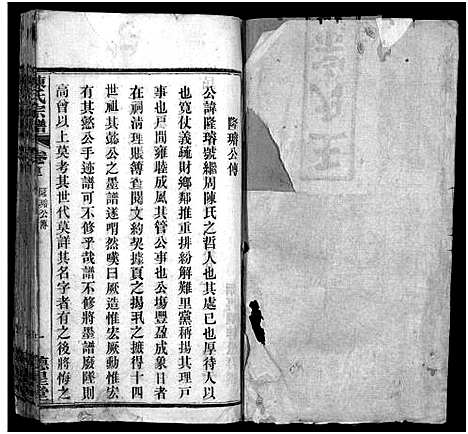 隆璿公傳
公諱隆璿號繼周陳氏之哲人也其處已也厚待人以
也寬仗義疏財鄉鄰推重排紛解難里黨稱揚其理戶
事也戶閭雍睦成風其管公事也公塲豐盈成象日者
在祠清理賬簿查閱文約契據頁之揚汎之摭得十四
世祖其懿公之墨譜遂喟然嘆曰厥造惟宏厥勳惟宏
有其懿公手迹譜可不修乎哉譜不修將墨譜廢墜則
高曾以上莫考其世代莫詳其名字者有之後將悔之
陳氏宗譜
卷首
隆璿公傳
德星堂